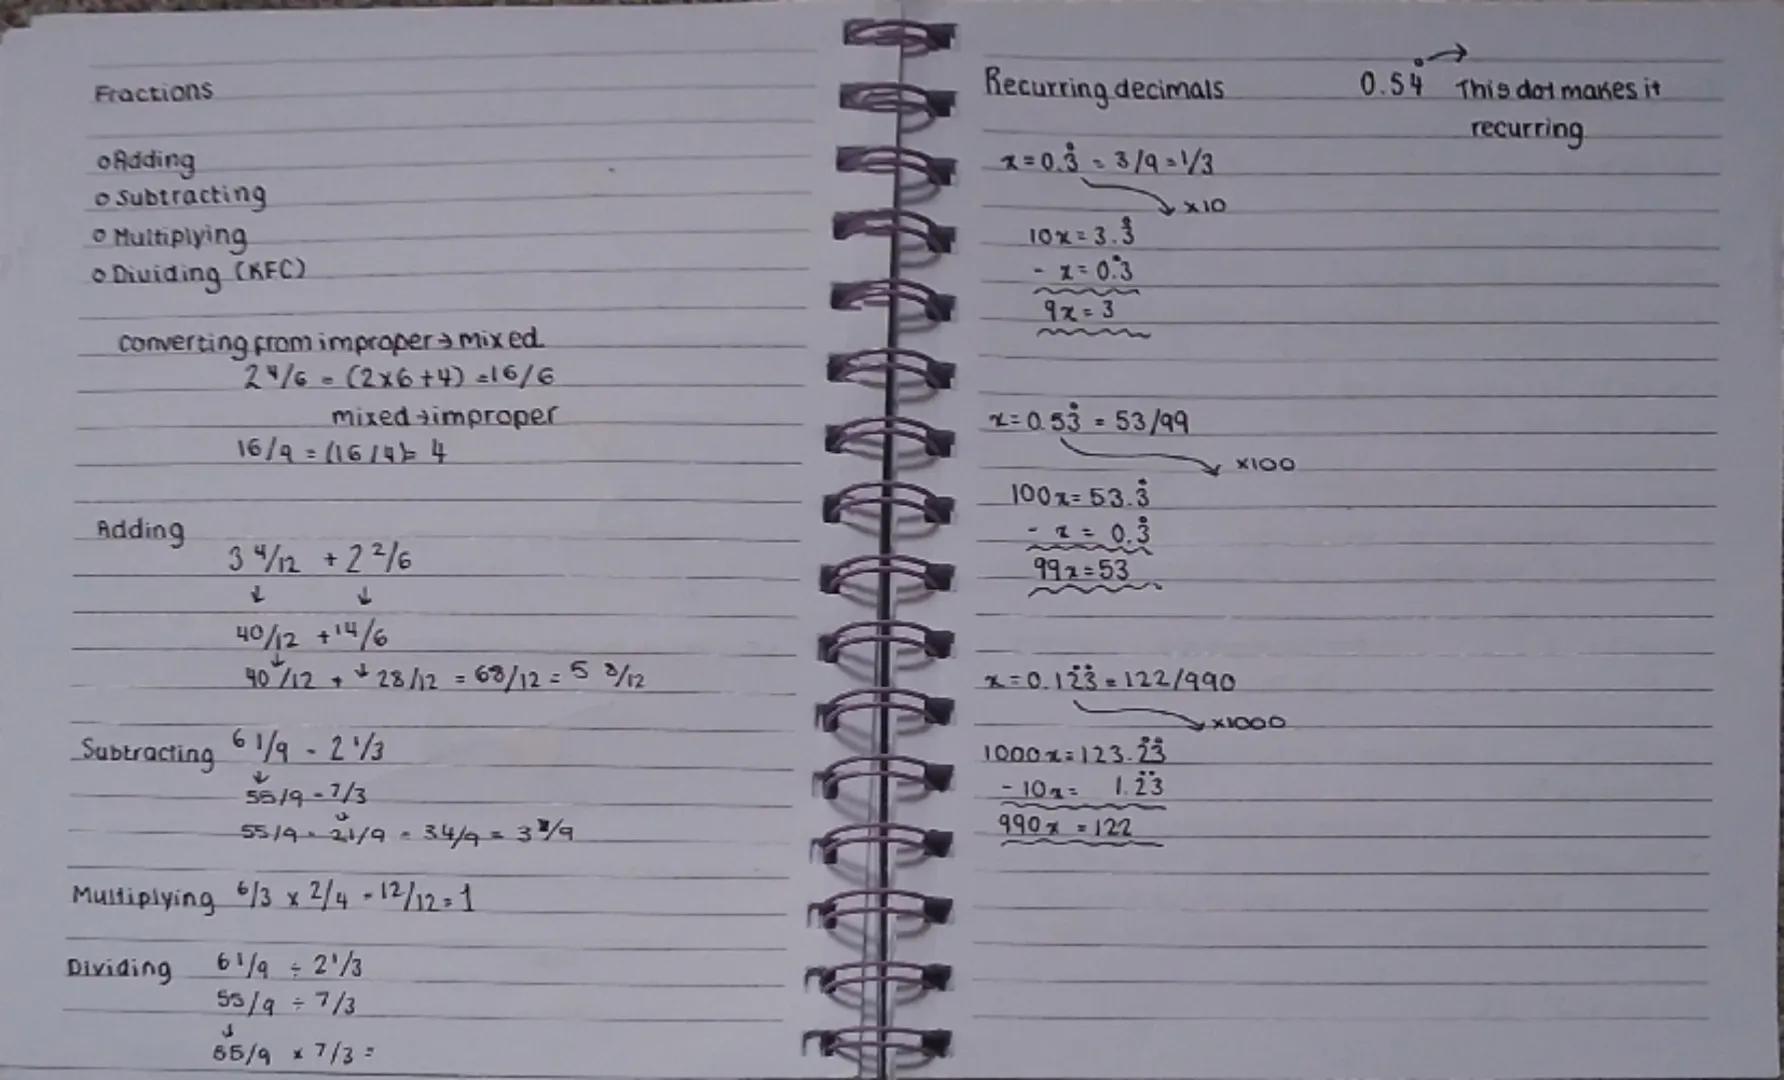 Fractions
o Adding
o Subtracting
o Multiplying
o Dividing (KFC)
converting from improper → mixed
2 4/6 = (2x6+4) = 16/6
mixed → improper
16/9 = (16/4) = 4
Adding
3 4/12 + 2 2/6
↓ ↓
40/12 + 14/6
40/12 + 28/12 = 68/12 = 5 8/12
Subtracting 6 1/9 - 2 1/3
↓
55/9 - 7/3
55/9 - 21/9 = 34/9 = 3 /9
Multiplying 6/3 x 2/4 = 12/12 = 1
Dividing 6 1/9 ÷ 2 1/3
55/9 ÷ 7/3
↓
55/9 x 7/3 =
Recurring decimals 0.54̇ → This dot makes it
recurring
x = 0.3̇ = 3/9 = 1/3
x10
10x = 3.3̇
- x = 0.̇3
9x = 3
x = 0.53̇ = 53/99
x100
100x = 53.3̇
- x = 0.3̇
99x = 53
x = 0.12̇3̇ = 122/990
x1000
1000x = 123.2̇3̇
- 10x = 1.2̇3̇
990x = 122